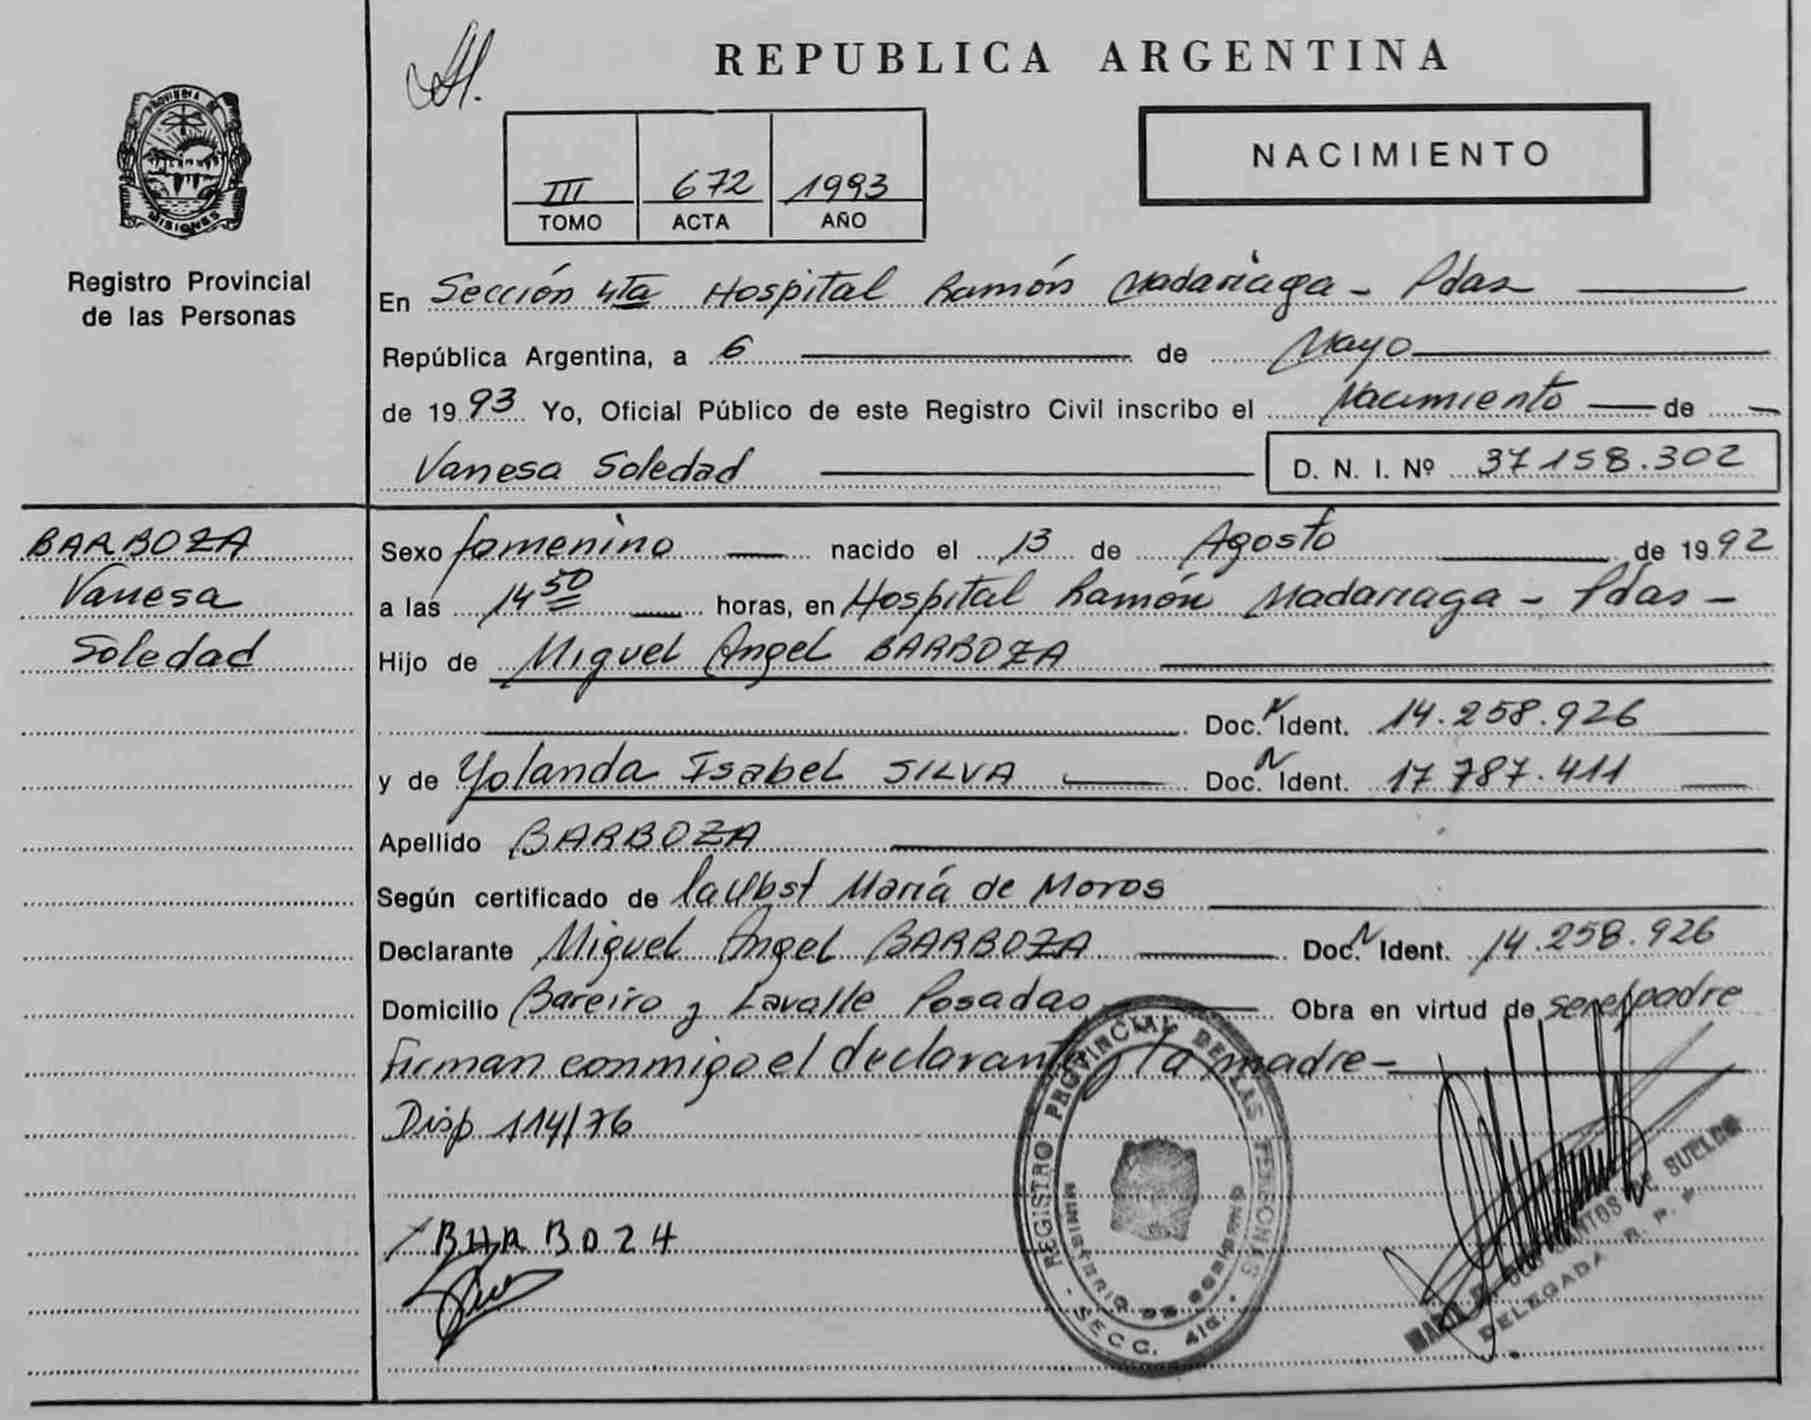 REPUBLICA ARGENTINA
PROVINCIA DE
MISIONES
Registro Provincial
de las Personas
III 672 1993
TOMO ACTA AÑO
NACIMIENTO
En Sección 4ta Hospital Ramón Madariaga - Pdas
República Argentina, a 6 de Mayo
de 1993 Yo, Oficial Público de este Registro Civil inscribo el Nacimiento de
Vanesa Soledad D. N. I. Nº 37158.302
BARBOZA
Vanesa
Soledad
Sexo femenino nacido el 13 de Agosto de 1992
a las 14 50 horas, en Hospital Ramón Madariaga - Pdas -
Hijo de Miguel Angel BARBOZA
Doc. N Ident. 14.258.926
y de Yolanda Isabel SILVA Doc. N Ident. 17 787.411
Apellido BARBOZA
Según certificado de la Obst María de Moros
Declarante Miguel Angel BARBOZA Doc. N Ident. 14.258.926
Domicilio Bareiro y Lavalle Posadas Obra en virtud de ser el padre
Firman conmigo el declarante y la madre -
Disp 114/76
BARBOZA
REGISTRO PROVINCIAL DE LAS PERSONAS
MINISTERIO DE GOBIERNO
- SECC. 4ta. -
DE SUELDO
DELEGADA R. P. P.